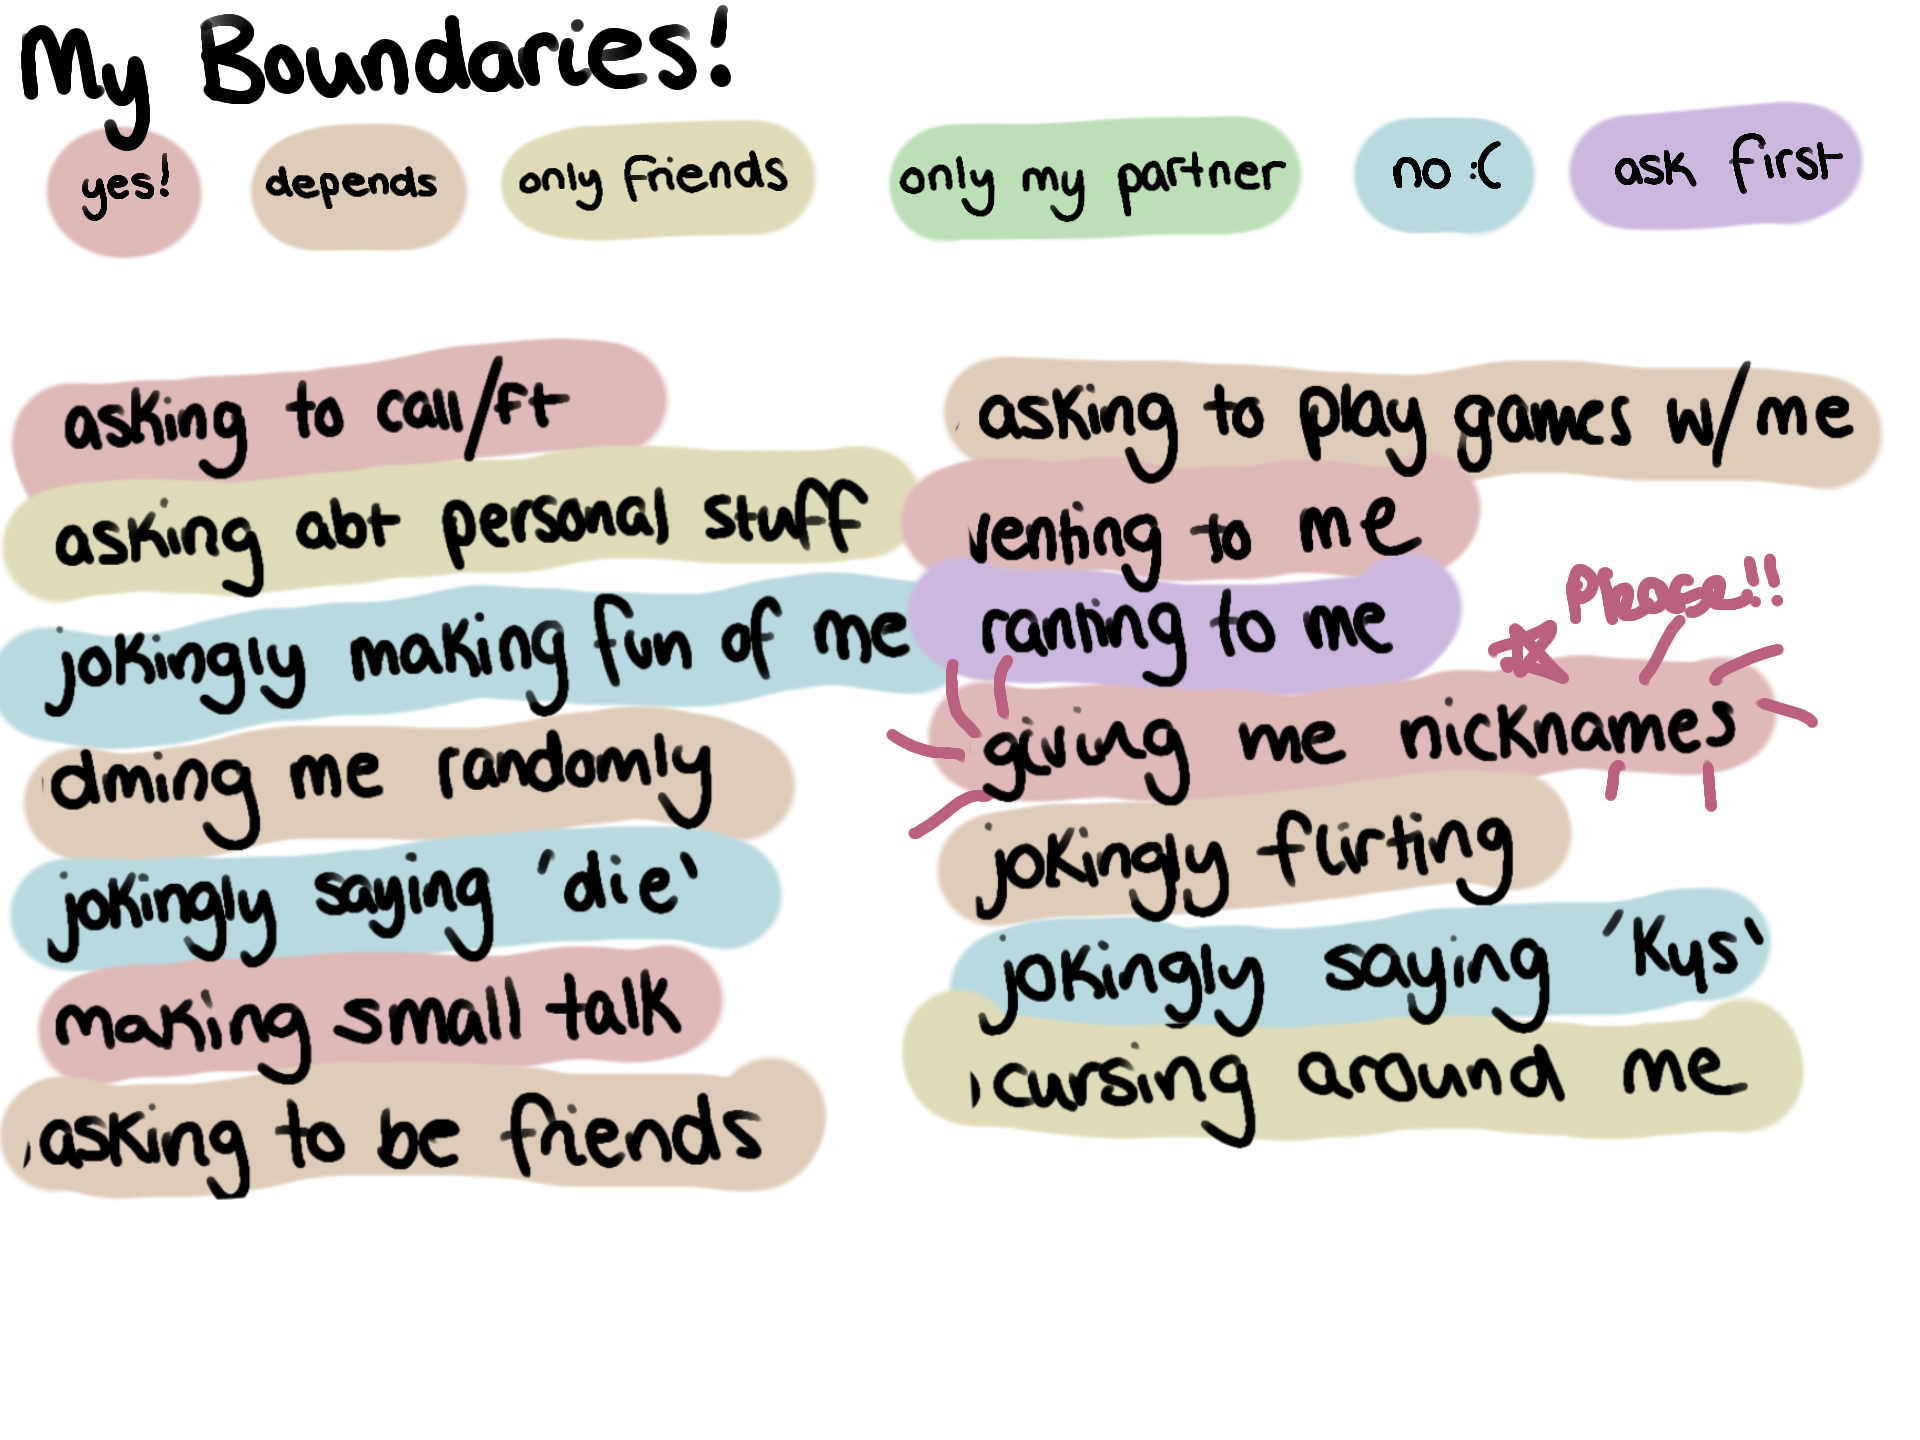 My Boundaries!
yes! depends only friends only my partner no :( ask first
asking to call/ft
asking abt personal stuff
jokingly making fun of me
dming me randomly
jokingly saying 'die'
making small talk
asking to be friends
asking to play games w/me
venting to me
ranting to me
please!!
giving me nicknames
jokingly flirting
jokingly saying 'kys'
cursing around me